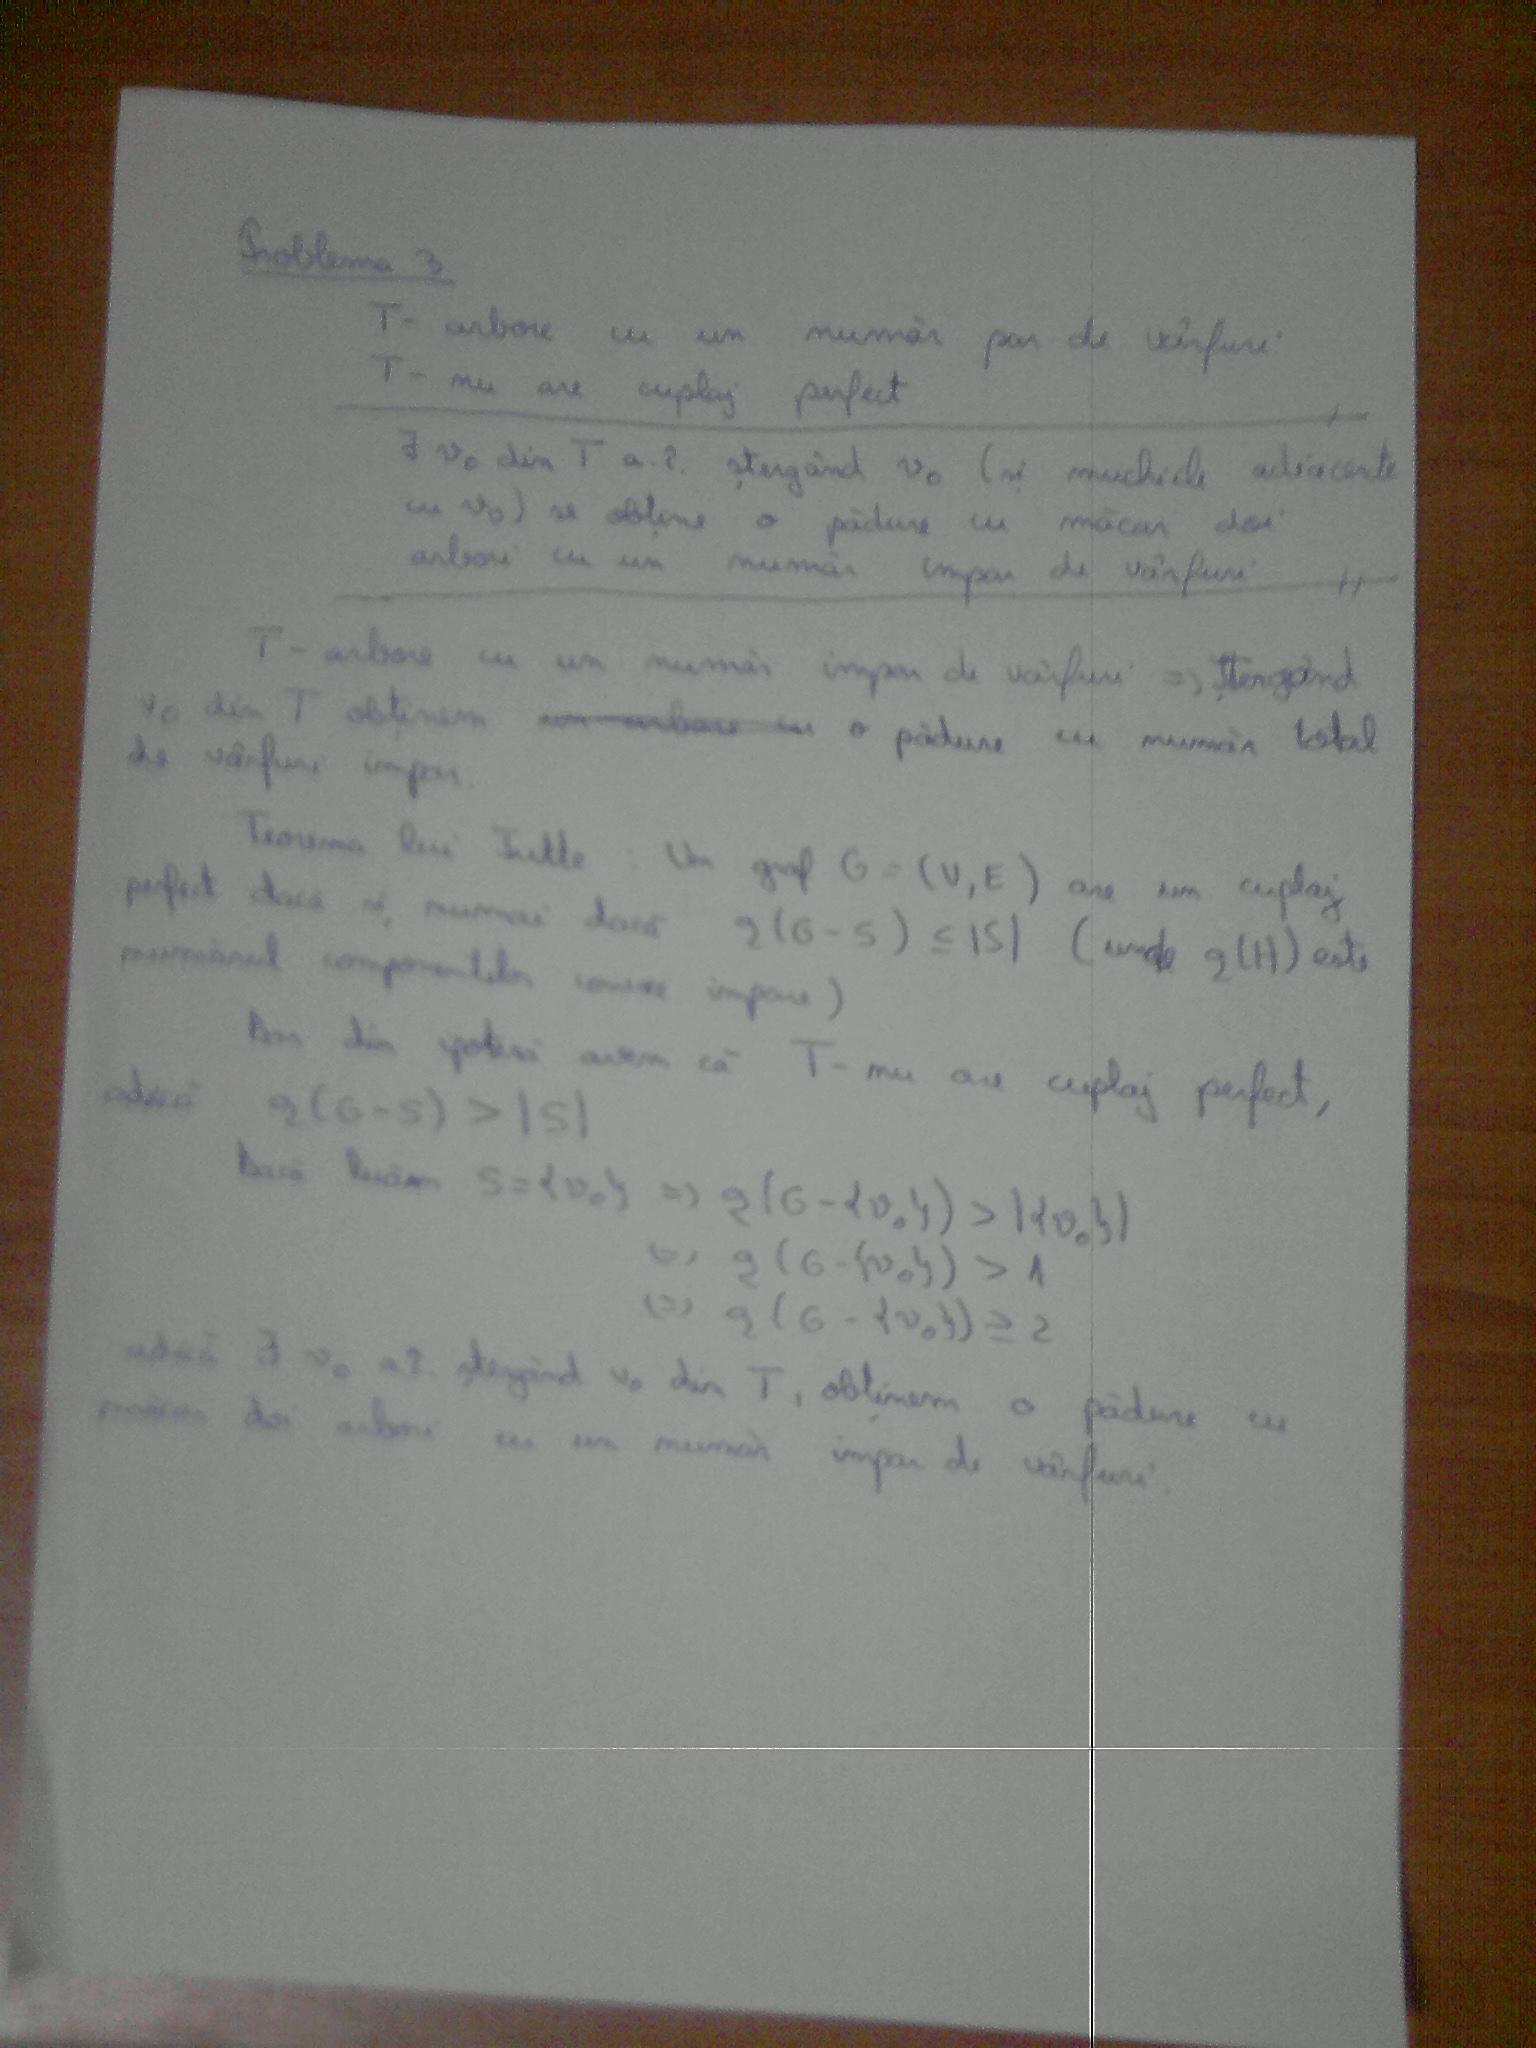 Problema 3
T- arbore cu un număr par de vârfuri
T- nu are cuplaj perfect
∃ v₀ din T a.î. ștergând v₀ (și muchiile adiacente
cu v₀) se obține o pădure cu măcar doi
arbori cu un număr impar de vârfuri
T- arbore cu un număr impar de vârfuri => Ștergând
v₀ din T obținem o pădure cu număr total
de vârfuri impar.
Teorema lui Tutte : Un graf G=(V,E) are un cuplaj
perfect dacă și numai dacă q(G-S) ≤ |S| (unde q(H) este
numărul componentelor conexe impare)
Dar din ipoteză avem că T- nu are cuplaj perfect,
adică q(G-S) > |S|
Dacă luăm S={v₀} => q(G-{v₀}) > |{v₀}|
<=> q(G-{v₀}) > 1
<=> q(G-{v₀}) ≥ 2
adică ∃ v₀ a.î. ștergând v₀ din T, obținem o pădure cu
măcar doi arbori cu un număr impar de vârfuri.